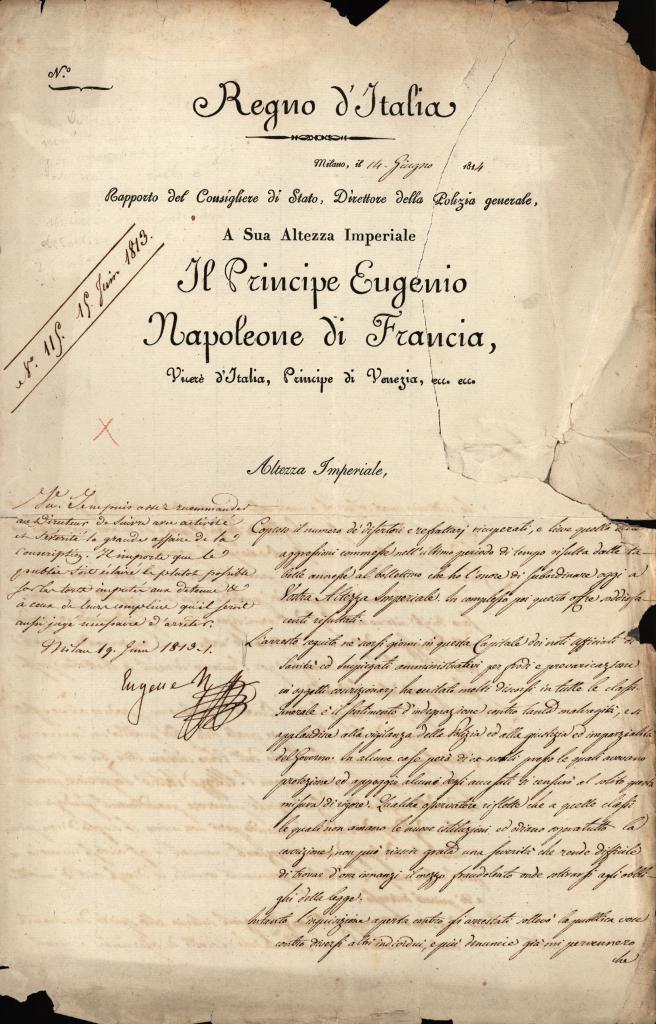 N.º
Regno d'Italia
Milano, il 14. Giugno 1814
Rapporto del Consigliere di Stato, Direttore della Polizia generale,
A Sua Altezza Imperiale
Il Principe Eugenio
Napoleone di Francia,
Vicerè d'Italia, Principe di Venezia, ecc. ecc.
Nº. 115. 15. Juin 1813.
Altezza Imperiale,
assez recommander
au Directeur de suivre avec activité
et sévérité la grande affaire de la
conscription. Il importe que le
public soit éclairé le plutot possible
sur les torts imputés aux détenus &
à ceux de leurs complices qu'il
aussi jugé nécessaire d'arrêter.
Milan 19. Juin 1813.
Eugene N
Copioso il numero di disertori e refrattarj ricuperati, e lieve quello
aggressioni commesse nell'ultimo periodo di tempo risulta dalle ta
belle annesse al bollettino che ho l'onore di subordinare oggi a
Vostra Altezza Imperiale. In complesso poi queste offre soddisfa
centi risultati.
L'arresto seguito ne' scorsi giorni in questa Capitale dei noti Uffiziali di
Sanità ed Impiegati amministrativi per frodi e prevaricazioni
in oggetti coscrizionarj ha eccitati molti discorsi in tutte le classi.
Generale è il sentimento d'indegnazione contro tanta malvagità, e si
applaudisce alla vigilanza della Polizia ed alla giustizia ed imparzialità
del Governo. In alcune case però di nobili presso le quali avevano
protezione ed appoggio alcuni degli accusati si censura al solito questa
misura di rigore. Qualche osservatore riflette che a quelle classi
le quali non amano le nuove istituzioni ed odiano sopratutto la
coscrizione, non può riescir grata una severità che rende difficile
di trovar d'ora innanzi il mezzo fraudolento onde sottrarsi agli obbli
ghi della legge.
Intanto l'inquisizione aperta contro gli arrestati sollevò la pubblica voce
contro diversi altri individui, e più denuncie già mi pervennero
che